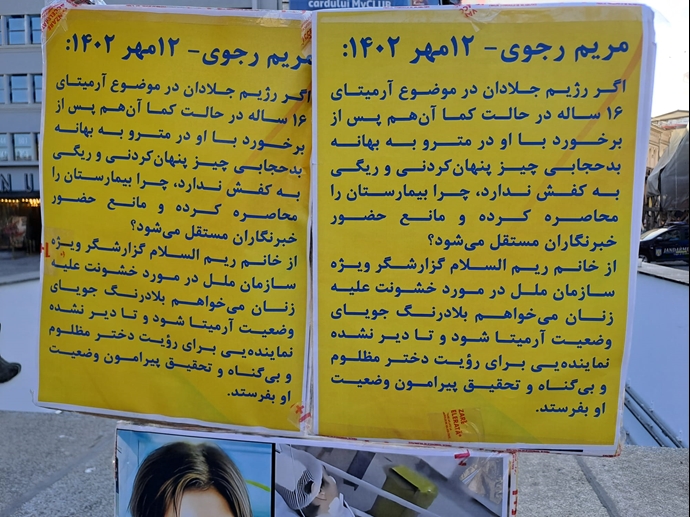 cardului MyCLUB
مریم رجوی- ۱۲مهر ۱۴۰۲:
اگر رژیم جلادان در موضوع آرمیتای
۱۶ ساله در حالت کما آن‌هم پس از
برخورد با او در مترو به بهانه
بدحجابی چیز پنهان‌کردنی و ریگی
به کفش ندارد، چرا بیمارستان را
محاصره کرده و مانع حضور
خبرنگاران مستقل می‌شود؟
از خانم ریم السلام گزارشگر ویژه
سازمان ملل در مورد خشونت علیه
زنان می‌خواهم بلادرنگ جویای
وضعیت آرمیتا شود و تا دیر نشده
نماینده‌یی برای رؤیت دختر مظلوم
و بی‌گناه و تحقیق پیرامون وضعیت
او بفرستد.
مریم رجوی- ۱۲مهر ۱۴۰۲:
اگر رژیم جلادان در موضوع آرمیتای
۱۶ ساله در حالت کما آن‌هم پس از
برخورد با او در مترو به بهانه
بدحجابی چیز پنهان‌کردنی و ریگی
به کفش ندارد، چرا بیمارستان را
محاصره کرده و مانع حضور
خبرنگاران مستقل می‌شود؟
از خانم ریم السلام گزارشگر ویژه
سازمان ملل در مورد خشونت علیه
زنان می‌خواهم بلادرنگ جویای
وضعیت آرمیتا شود و تا دیر نشده
نماینده‌یی برای رؤیت دختر مظلوم
و بی‌گناه و تحقیق پیرامون وضعیت
او بفرستد.